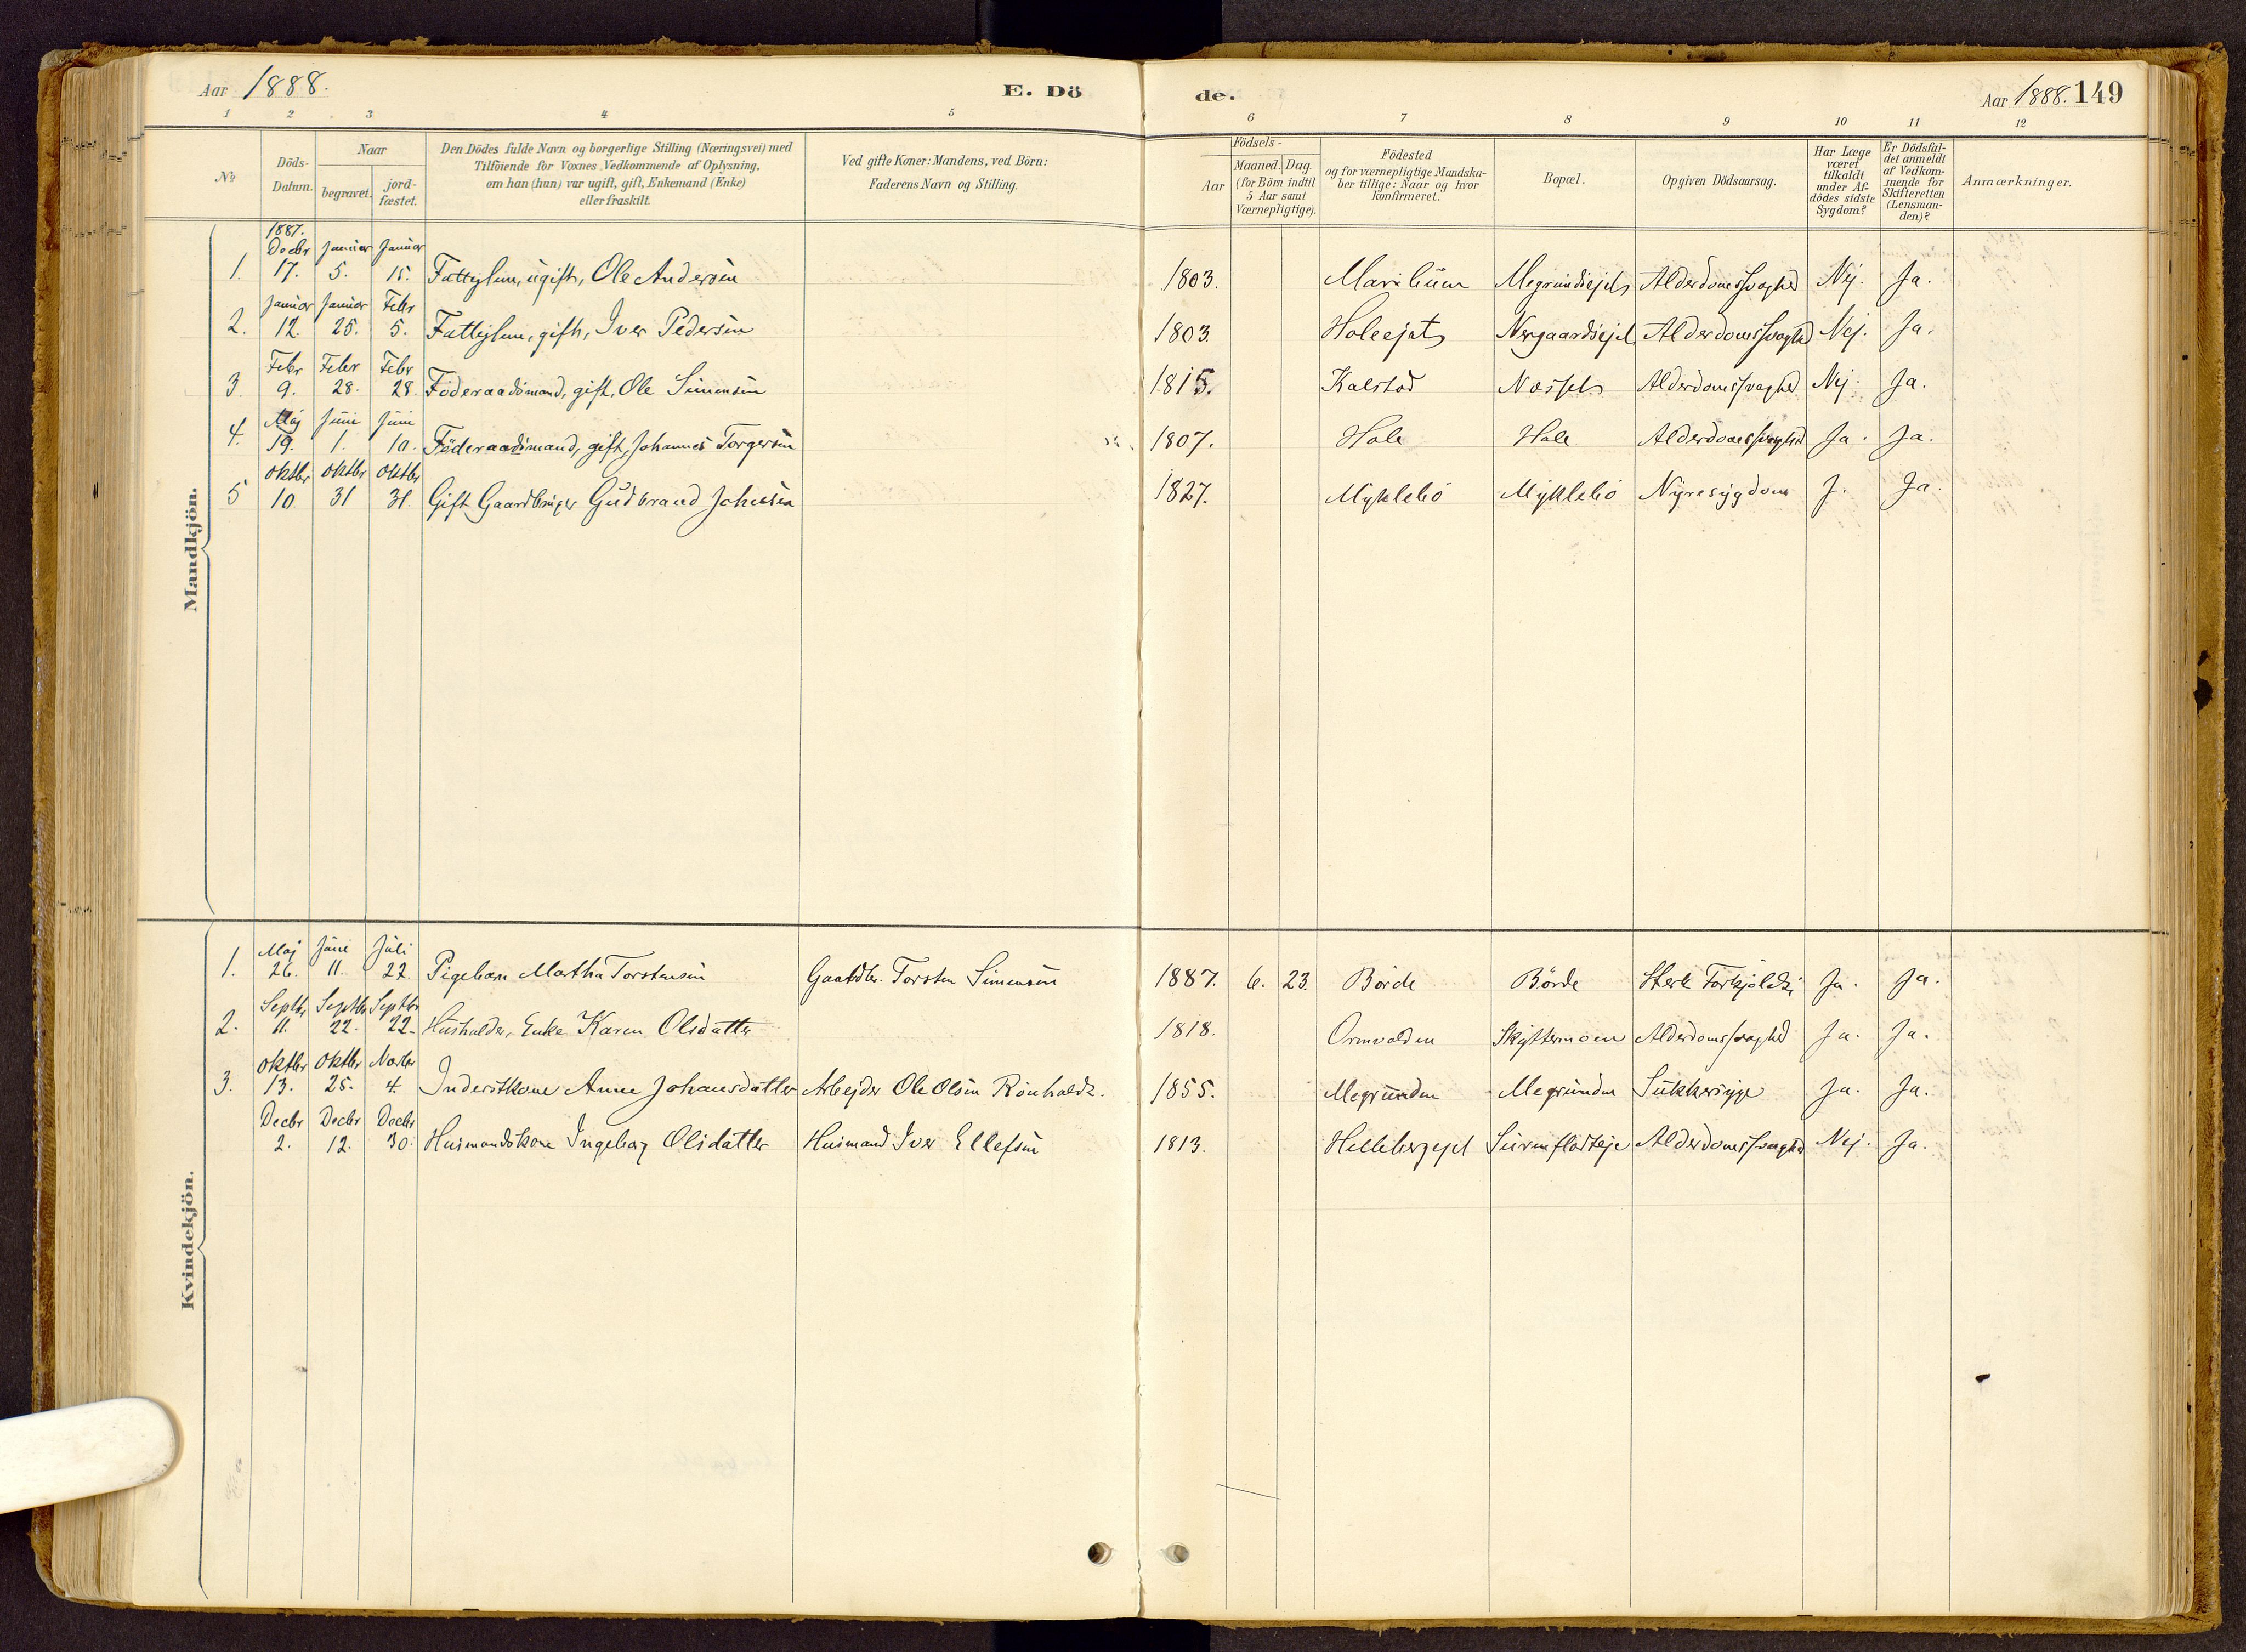 Aar 1888. E. Dö de. Aar 1888. 149
1 2 3 4 5 6 7 8 9 10 11 12
№ Döds-Datum. Naar begravet. jord-fæstet. Den Dödes fulde Navn og borgerlige Stilling (Næringsvei) med Tilföiende for Voxnes Vedkommende af Oplysning, om han (hun) var ugift, gift, Enkemand (Enke) eller fraskilt. Ved gifte Koner: Mandens, ved Börn: Faderens Navn og Stilling. Födsels- Aar Maaned. Dag. (for Börn indtil 5 Aar samt Værnepligtige). Födested og for værnepligtige Mandskaber tillige: Naar og hvor konfirmeret. Bopæl. Opgiven Dödsaarsag. Har Læge været tilkaldt under Afdödes sidste Sygdom? Er Dödsfaldet anmeldt af Vedkommende for Skifteretten (Lensmanden)? Anmærkninger.
Mandkjön.
1887.
Decbr Januar Januar
1. 17. 5. 15. Fattiglem, ugift, Ole Andersen 1803. Alderdomssvaghed Nej. Ja.
Januar Januar Febr
2. 12. 25. 5. Fattiglem, gift, Iver Pedersen 1803. Holeejet Nergaardsejet Alderdomssvaghed Nej. Ja.
Febr Febr Febr
3. 9. 28. 28. Föderaadsmand, gift, Ole Simensen 1815. Kalstad Alderdomssvaghed Nej. Ja.
Maj Juni Juni
4. 19. 1. 10. Föderaadsmand, gift, Johannes Torgersen 1807. Hole Hole Alderdomssvaghed Ja. Ja.
Oktbr Oktbr Oktbr
5 10. 31 31. Gift Gaardbruger Gudbrand Johnsen 1827. Myklebö Myklebö Nyresygdom J. Ja.
Kvindekjön.
Maj Juni Juli
1. 26. 11. 22. Pigebarn Martha Torstensen Gaardbr. Torsten Simensen 1887. 6. 23. Börde Börde Sterk Ja. Ja.
Septbr Septbr Septbr
2. 11. 22. 22. Husholder, Enke Karen Olsdatter 1818. Ormvolden Skyttermoen Alderdomssvaghed Ja. Ja.
Oktbr Oktbr Novbr
3. 13. 25. 4. Inderstkone Anne Johansdatter Arbejder Ole Olsen 1855. Megrunden Megrunden Sukkersyge Ja. Ja.
Decbr Decbr Decbr
2. 12. 30. Husmandskone Ingeborg Olsdatter Husmand Iver Ellefsen 1813. Alderdomssvaghed Nej. Ja.